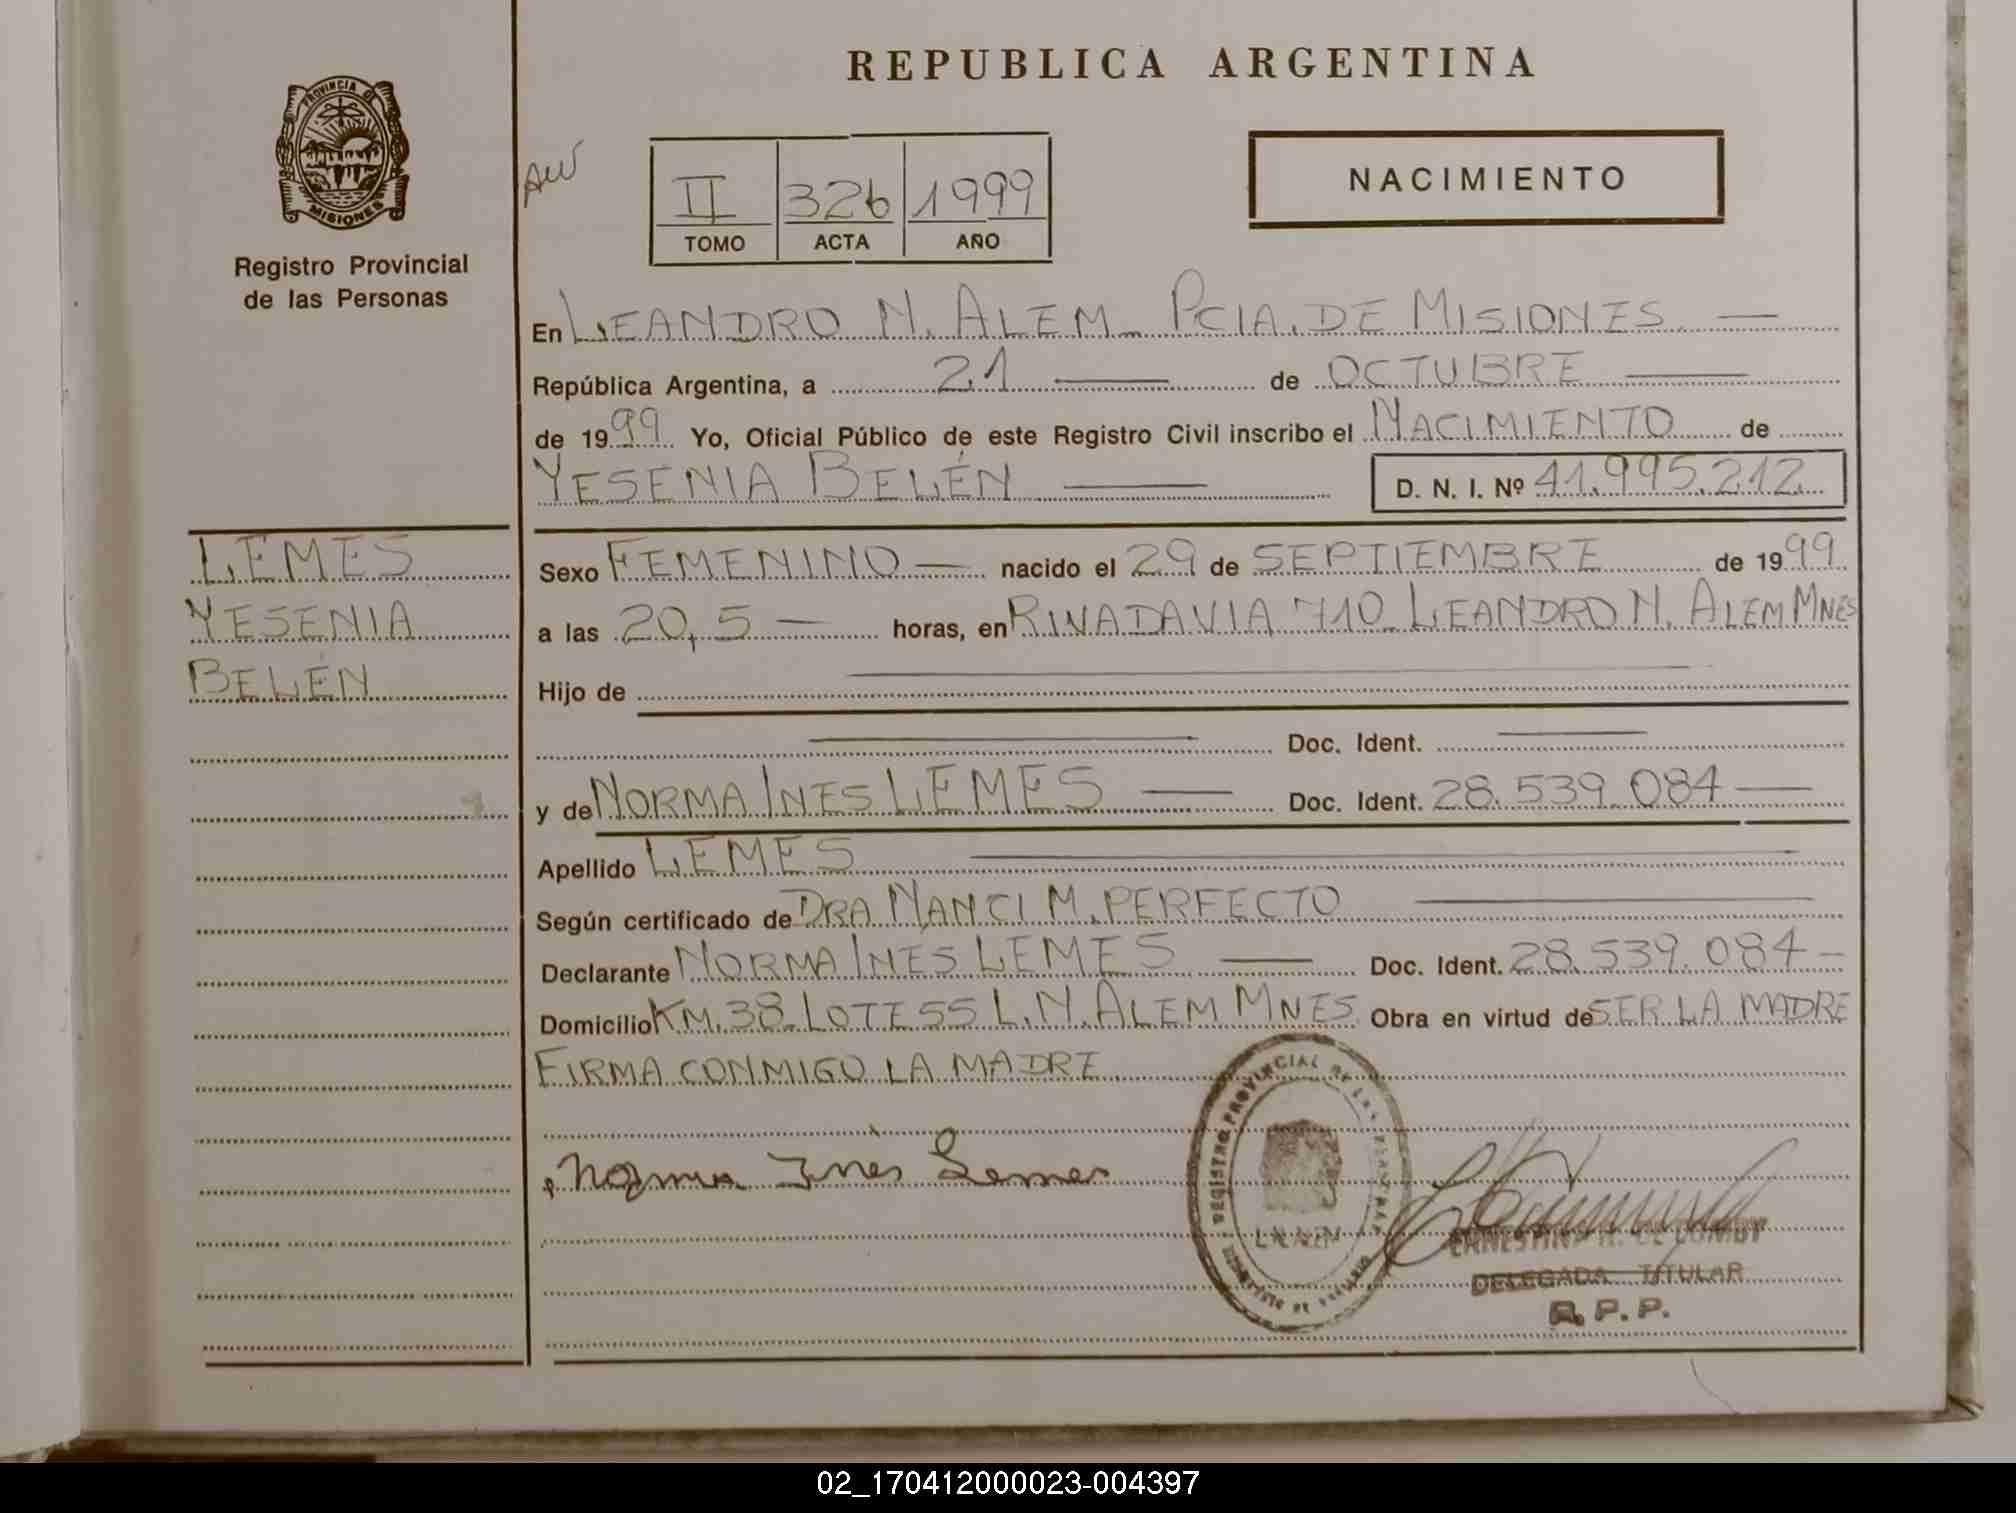 REPUBLICA ARGENTINA
PROVINCIA DE
MISIONES
Registro Provincial
de las Personas
II 326 1999
TOMO ACTA AÑO
NACIMIENTO
En LEANDRO N. ALEM - PCIA. DE MISIONES —
República Argentina, a 21 — de OCTUBRE —
de 1999 Yo, Oficial Público de este Registro Civil inscribo el NACIMIENTO de
YESENIA BELÉN — D. N. I. Nº 41.995.212
LEMES
YESENIA
BELÉN
Sexo FEMENINO — nacido el 29 de SEPTIEMBRE de 1999
a las 20,5 — horas, en RIVADAVIA 710 - LEANDRO N. ALEM MNES
Hijo de —
— Doc. Ident. —
y de NORMA INES LEMES — Doc. Ident. 28.539.084 —
Apellido LEMES —
Según certificado de DRA NANCI M. PERFECTO —
Declarante NORMA INÉS LEMES — Doc. Ident. 28.539.084 —
Domicilio KM. 38 - LOTE 55 L.N. ALEM MNES Obra en virtud de SER LA MADRE
FIRMA CONMIGO LA MADRE
Norma Inés Lemes
REGISTRO PROVINCIAL DE LAS PERSONAS
L.N. ALEM
DELEGADA TITULAR
R.P.P.
02_170412000023-004397